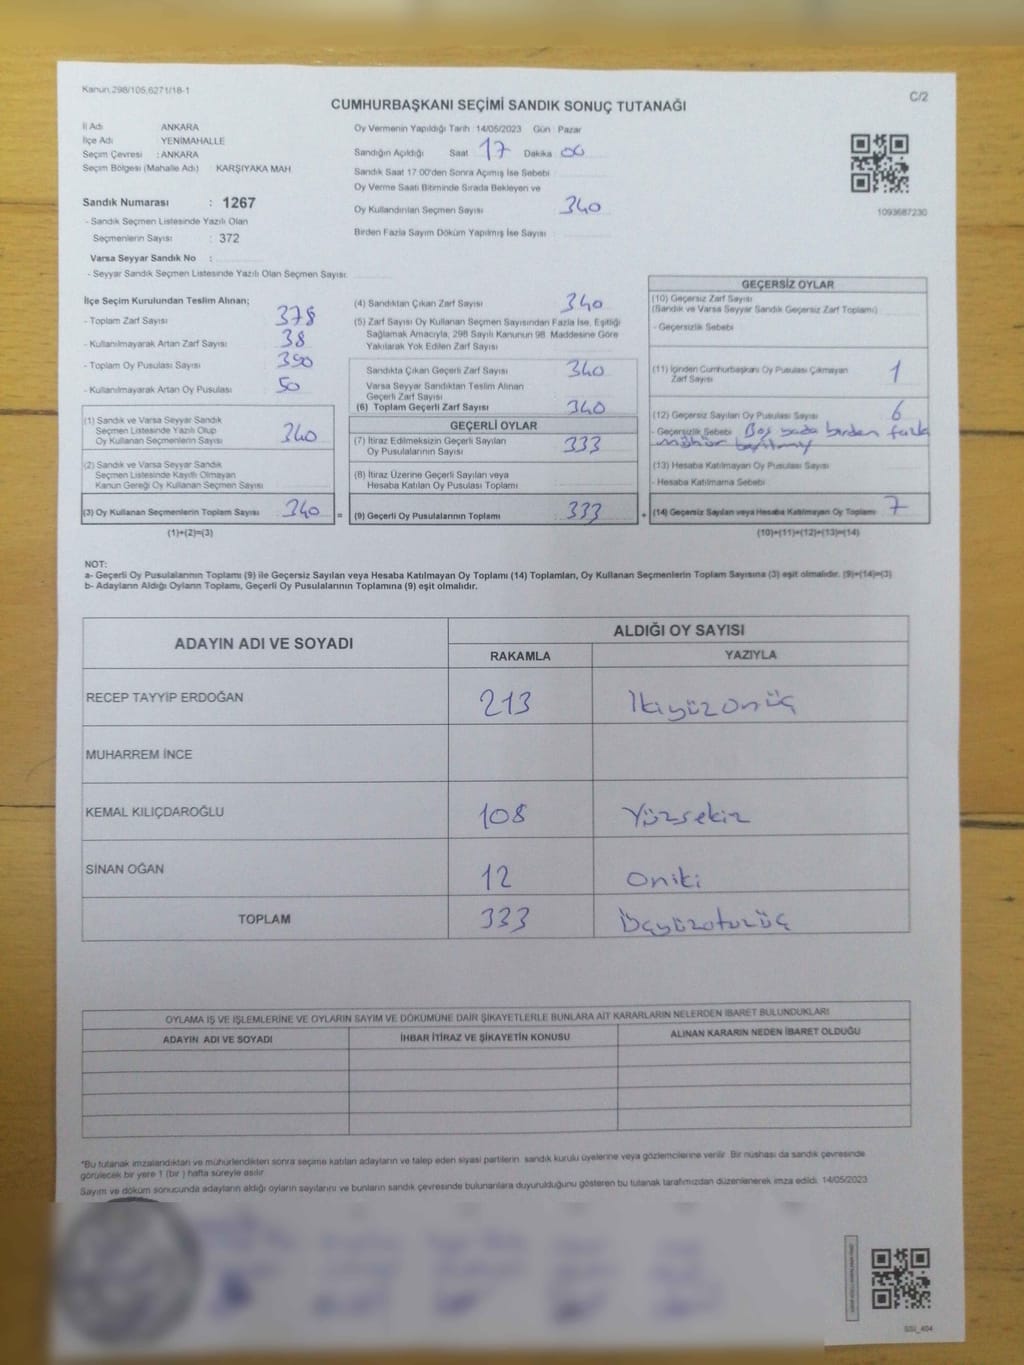 Kanun.298/105,6271/18-1
C/2
CUMHURBAŞKANI SEÇİMİ SANDIK SONUÇ TUTANAĞI
İl Adı ANKARA
İlçe Adı YENİMAHALLE
Seçim Çevresi : ANKARA
Seçim Bölgesi (Mahalle Adı) KARŞIYAKA MAH
Sandık Numarası : 1267
- Sandık Seçmen Listesinde Yazılı Olan
Seçmenlerin Sayısı : 372
Varsa Seyyar Sandık No :
- Seyyar Sandık Seçmen Listesinde Yazılı Olan Seçmen Sayısı:
Oy Vermenin Yapıldığı Tarih 14/05/2023 Gün Pazar
Sandığın Açıldığı Saat 17 Dakika 00
Sandık Saat 17:00'den Sonra Açımış İse Sebebi
Oy Verme Saati Bitiminde Sırada Bekleyen ve
Oy Kullandırılan Seçmen Sayısı 340
Birden Fazla Sayım Döküm Yapılmış İse Sayısı
1093687230
İlçe Seçim Kurulundan Teslim Alınan;
- Toplam Zarf Sayısı 378
- Kullanılmayarak Artan Zarf Sayısı 38
- Toplam Oy Pusulası Sayısı 390
- Kullanılmayarak Artan Oy Pusulası 50
(1) Sandık ve Varsa Seyyar Sandık
Seçmen Listesinde Yazılı Olup
Oy Kullanan Seçmenlerin Sayısı 340
(2) Sandık ve Varsa Seyyar Sandık
Seçmen Listesinde Kayıtlı Olmayan
Kanun Gereği Oy Kullanan Seçmen Sayısı
(3) Oy Kullanan Seçmenlerin Toplam Sayısı 340 =
(1)+(2)=(3)
(4) Sandıktan Çıkan Zarf Sayısı 340
(5) Zarf Sayısı Oy Kullanan Seçmen Sayısından Fazla İse, Eşitliği
Sağlamak Amacıyla, 298 Sayılı Kanunun 98. Maddesine Göre
Yakılarak Yok Edilen Zarf Sayısı
Sandıkta Çıkan Geçerli Zarf Sayısı 340
Varsa Seyyar Sandıktan Teslim Alınan
Geçerli Zarf Sayısı
(6) Toplam Geçerli Zarf Sayısı 340
GEÇERLİ OYLAR
(7) İtiraz Edilmeksizin Geçerli Sayılan
Oy Pusulalarının Sayısı 333
(8) İtiraz Üzerine Geçerli Sayılan veya
Hesaba Katılan Oy Pusulası Toplamı
(9) Geçerli Oy Pusulalarının Toplamı 333 +
GEÇERSİZ OYLAR
(10) Geçersiz Zarf Sayısı
(Sandık ve Varsa Seyyar Sandık Geçersiz Zarf Toplamı)
- Geçersizlik Sebebi
(11) İçinden Cumhurbaşkanı Oy Pusulası Çıkmayan
Zarf Sayısı 1
(12) Geçersiz Sayılan Oy Pusulası Sayısı 6
- Geçersizlik Sebebi Boş yada birden fazla
mühür basılmış
(13) Hesaba Katılmayan Oy Pusulası Sayısı
- Hesaba Katılmama Sebebi
(14) Geçersiz Sayılan veya Hesaba Katılmayan Oy Toplamı 7
(10)+(11)+(12)+(13)=(14)
NOT:
a- Geçerli Oy Pusulalarının Toplamı (9) ile Geçersiz Sayılan veya Hesaba Katılmayan Oy Toplamı (14) Toplamları, Oy Kullanan Seçmenlerin Toplam Sayısına (3) eşit olmalıdır. (9)+(14)=(3)
b- Adayların Aldığı Oyların Toplamı, Geçerli Oy Pusulalarının Toplamına (9) eşit olmalıdır.
ADAYIN ADI VE SOYADI
ALDIĞI OY SAYISI
RAKAMLA YAZIYLA
RECEP TAYYİP ERDOĞAN 213 İkiyüzonüç
MUHARREM İNCE
KEMAL KILIÇDAROĞLU 108 Yüzsekiz
SİNAN OĞAN 12 Oniki
TOPLAM 333 Üçyüzotuzüç
OYLAMA İŞ VE İŞLEMLERİNE VE OYLARIN SAYIM VE DÖKÜMÜNE DAİR ŞİKAYETLERLE BUNLARA AİT KARARLARIN NELERDEN İBARET BULUNDUKLARI
ADAYIN ADI VE SOYADI İHBAR İTİRAZ VE ŞİKAYETİN KONUSU ALINAN KARARIN NEDEN İBARET OLDUĞU
*Bu tutanak imzalandıktan ve mühürlendikten sonra seçime katılan adayların ve talep eden siyasi partilerin sandık kurulu üyelerine veya gözlemcilerine verilir. Bir nüshası da sandık çevresinde
görülecek bir yere 1 (bir) hafta süreyle asılır.
Sayım ve döküm sonucunda adayların aldığı oyların sayılarını ve bunların sandık çevresinde bulunanlara duyurulduğunu gösteren bu tutanak tarafımızdan düzenlenerek imza edildi. 14/05/2023
SSİ_404